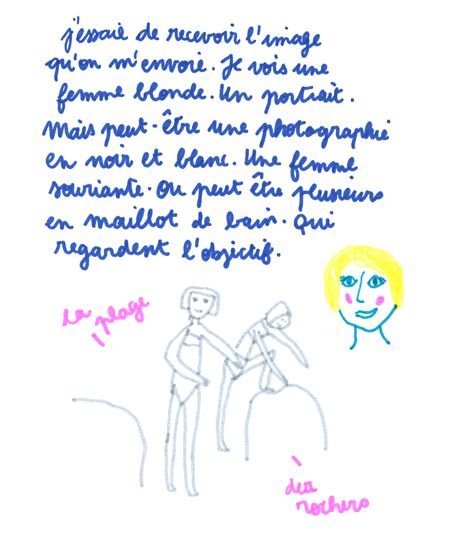 j'éssaie de recevoir l'image
qu'on m'envoie. Je vois une
femme blonde. Un portrait.
Mais peut-être une photographie
en noir et blanc. Une femme
souriante. Ou peut être plusieurs
en maillot de bain. Qui
regardent l'objectif.
la plage
des
rochers